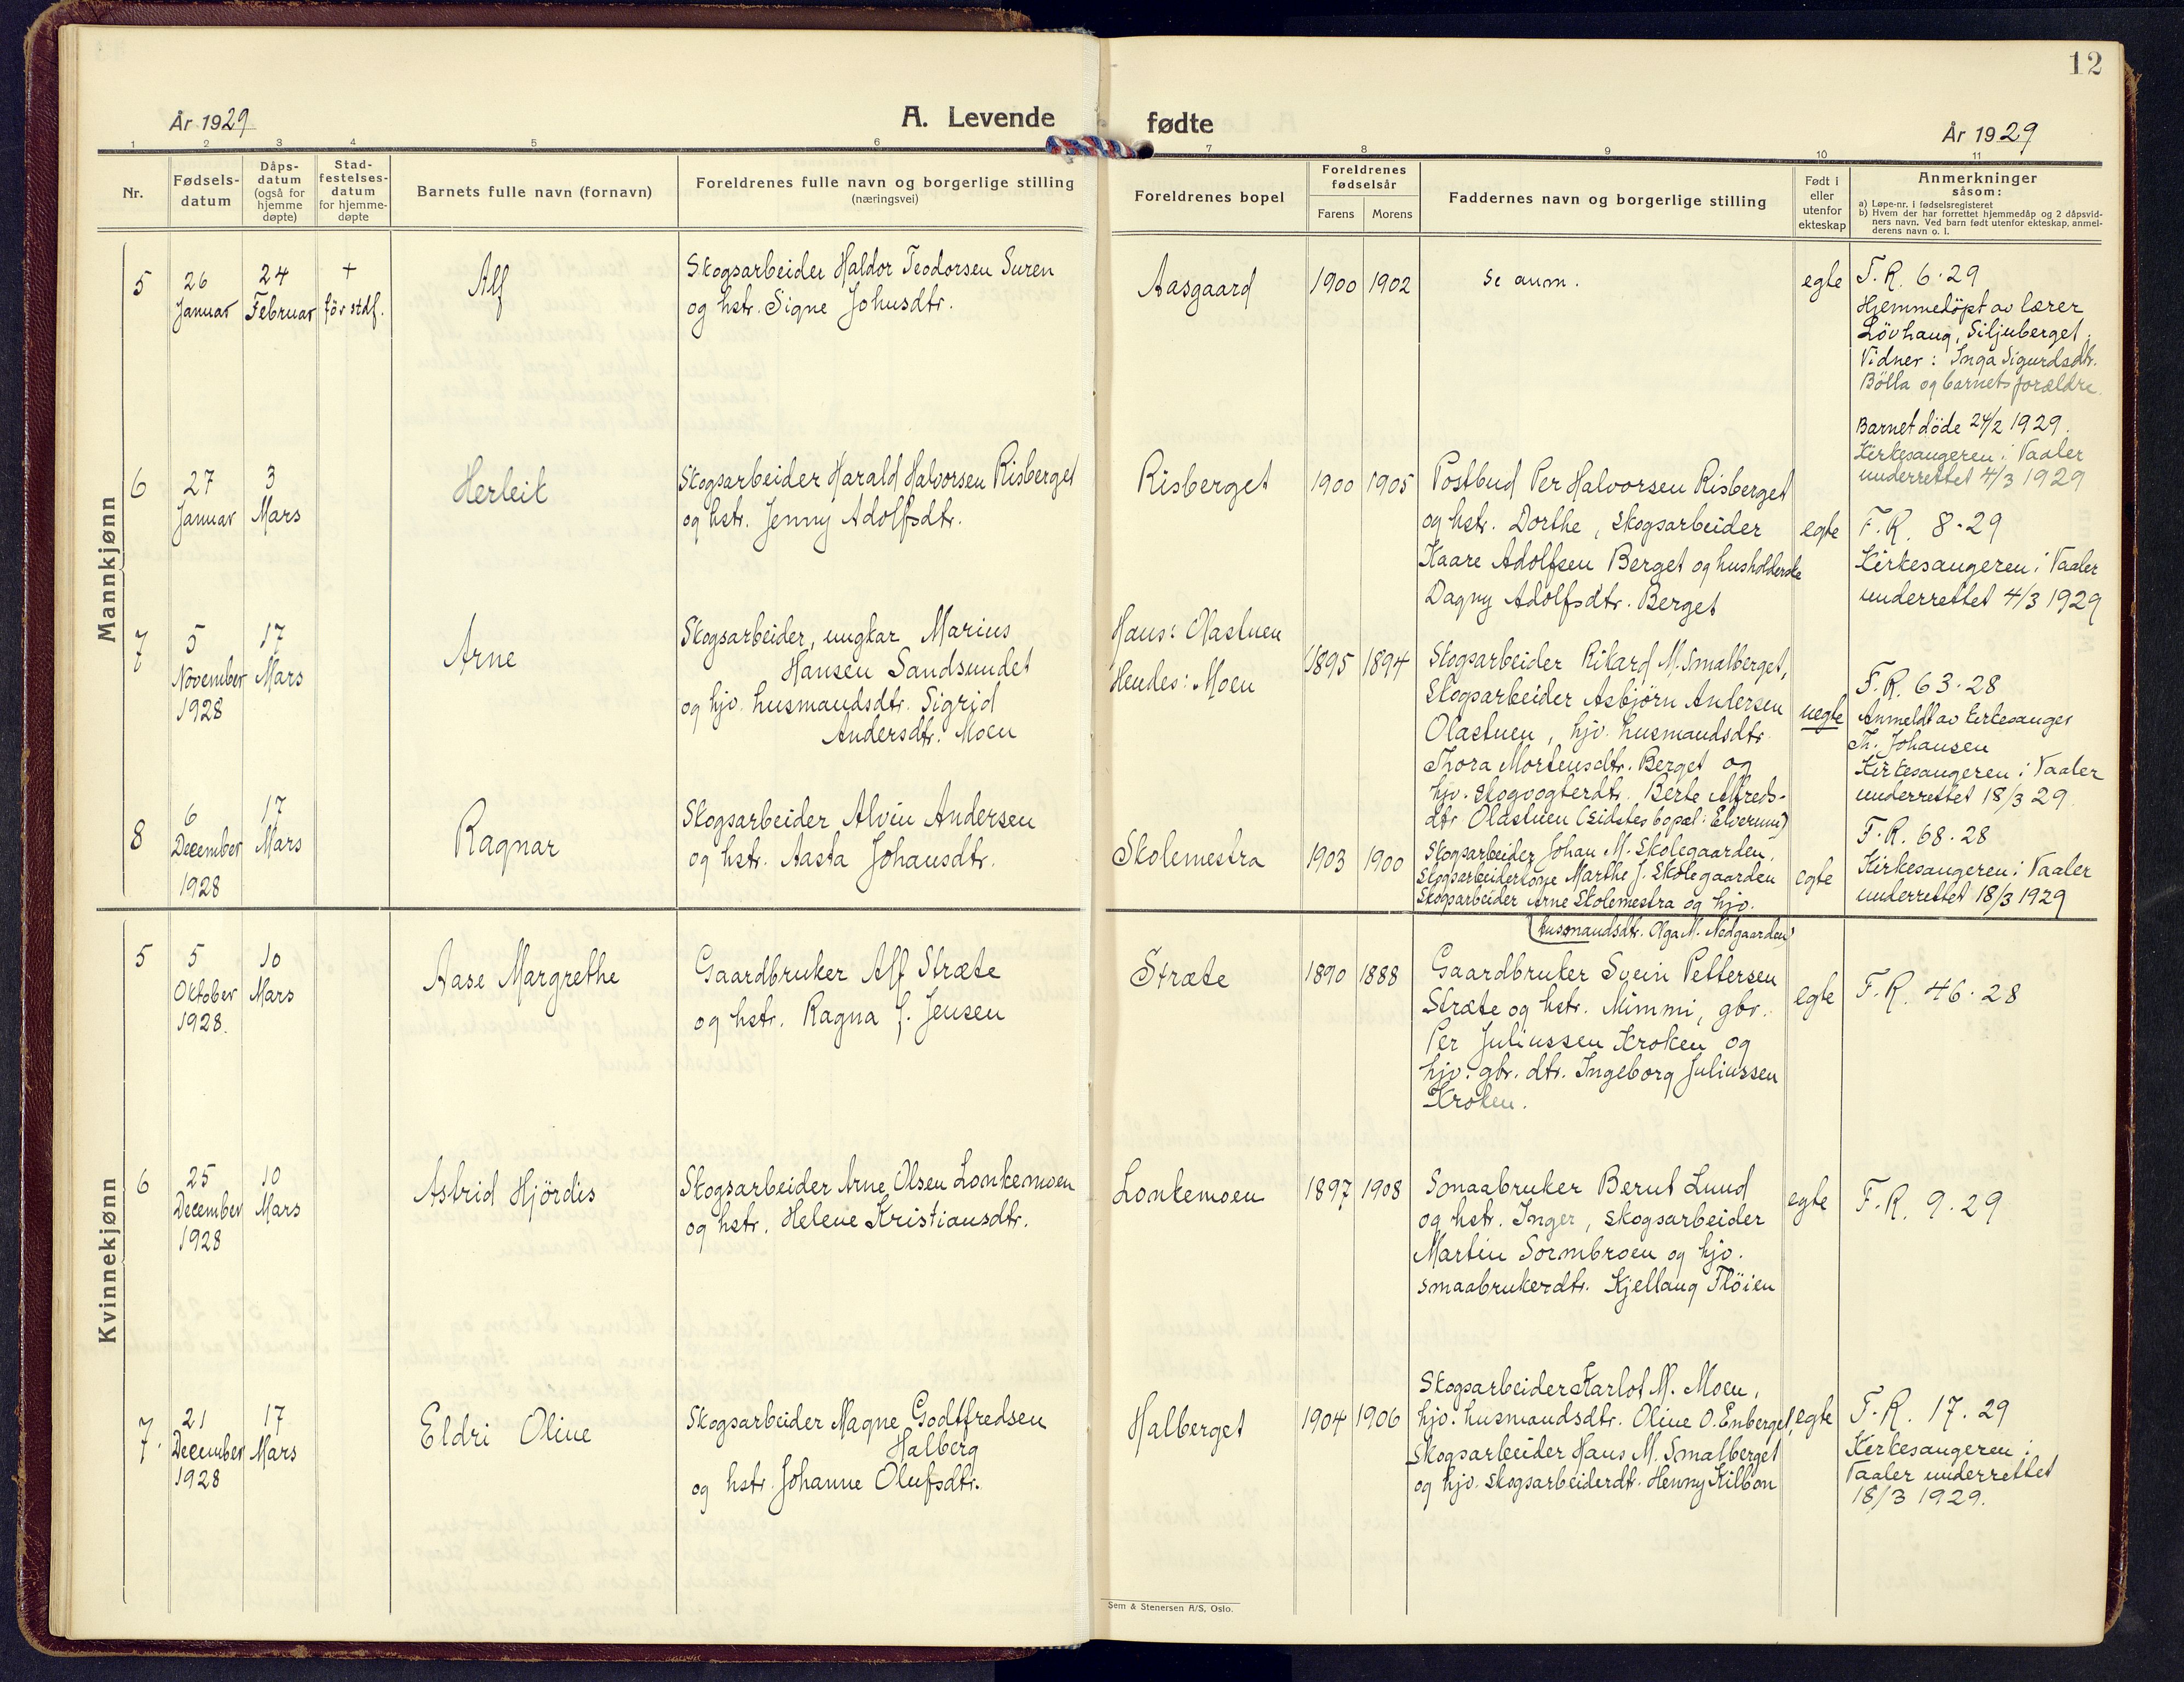 12
År 1929
A. Levende
fødte
År 1929
1 2 3 4 5 6 7 8 9 10 11
Nr.
Fødsels-
datum
Dåps-
datum
(også for
hjemme
døpte)
Stad-
festelses-
datum
for hjemme-
døpte
Barnets fulle navn (fornavn)
Foreldrenes fulle navn og borgerlige stilling
(næringsvei)
Foreldrenes bopel
Foreldrenes
fødselsår
Farens Morens
Faddernes navn og borgerlige stilling
Født i
eller
utenfor
ekteskap
Anmerkninger
såsom:
a) Løpe-nr. i fødselsregisteret
b) Hvem der har forrettet hjemmedåp og 2 dåpsvid-
ners navn. Ved barn født utenfor ekteskap, anmel-
derens navn o. l.
Mannkjønn
5
26
Januar
24
Februar
+
för stdf.
Alf
Skogsarbeider Haldor Teodorsen Suren
og hstr. Signe Johusdtr.
Aasgaard
1900 1902
Se anm.
egte
F.R. 6-29
Hjemmedöpt av lærer
Lövhaug, Siljuberget.
Vidner: Inga Sigurdsdtr.
Bölla og barnets forældre.
Barnet döde 24/2 1929.
Kirkesangeren i Vaaler
underrettet 4/3 1929
6
27
Januar
3
Mars
Herleik
Skogsarbeider Harald Halvorsen Risberget
og hstr. Jenny Adolfsdtr.
Risberget
1900 1905
Postbud Per Halvorsen Risberget
og hstr. Dorthe, skogsarbeider
Kaare Adolfsen Berget og husholderske
Dagny Adolfsdtr. Berget
egte
F.R. 8-29
Kirkesangeren i Vaaler
underrettet 4/3 1929
7
5
November
1928
17
Mars
Arne
Skogsarbeider, ungkar Marius
Hansen Sandsundet
og hjv. husmandsdtr. Sigrid
Andersdtr. Moen
Hans: Olastuen
Hendes: Moen
1895 1894
Skogsarbeider Rikard M. Smalberget,
Skogsarbeider Asbjørn Andersen
Olastuen, hjv. husmandsdtr.
Thora Mortensdtr. Berget og
hjv. skogvogterdtr. Berte Alfreds-
dtr Olastuen (Sidstes bopæl: Elverum)
uegte
F.R. 63-28
Anmeldt av kirkesanger
Th. Johansen
Kirkesangeren i Vaaler
underrettet 18/3 29.
8
6
December
1928
17
Mars
Ragnar
Skogsarbeider Alvin Andersen
og hstr. Aasta Johansdtr.
Skolemestra
1903 1900
Skogsarbeider Johan M. Skolegaarden,
Skogsarbeiderkone Marthe J. Skolegaarden
Skogsarbeider Arne Skolemestra og hjv.
husmandsdtr. Olga M. Nedgaarden
egte
F.R. 68-28
Kirkesangeren i Vaaler
underrettet 18/3 1929
Kvinnekjønn
5
5
Oktober
1928.
10
Mars
Aase Margrethe
Gaardbruker Alf Stræte
og hstr. Ragna J. Jensen
Stræte
1890 1888
Gaardbruker Svein Pettersen
Stræte og hstr. Mimmi, gbr.
Per Juliussen Kroken og
hjv. gbr. dtr. Ingeborg Juliussen
Kroken.
egte
F.R. 46-28
6
25
December
1928
10
Mars
Astrid Hjördis
Skogsarbeider Arne Olsen Lonkemoen
og hstr. Helene Kristiansdtr.
Lonkemoen
1897 1908
Smaabruker Bernt Lund
og hstr. Inger, skogsarbeider
Martin Sormbroen og hjv.
smaabrukerdtr. Kjellaug Flöien
egte
F.R. 9-29
7.
21
December
1928
17
Mars
Eldri Oline
Skogsarbeider Magne Godtfredsen
Halberg
og hstr. Johanne Olufsdtr.
Halberget
1904 1906
Skogsarbeider Karlot M. Moen,
hjv. husmandsdtr. Oline O. Enberget,
Skogsarbeider Hans M. Smalberget
og hjv. skogsarbeiderdtr. Henny Kilbon
egte
F.R. 17.29
Kirkesangeren i
Vaaler underrettet
18/3 1929.
Sem & Stenersen A/S, Oslo.